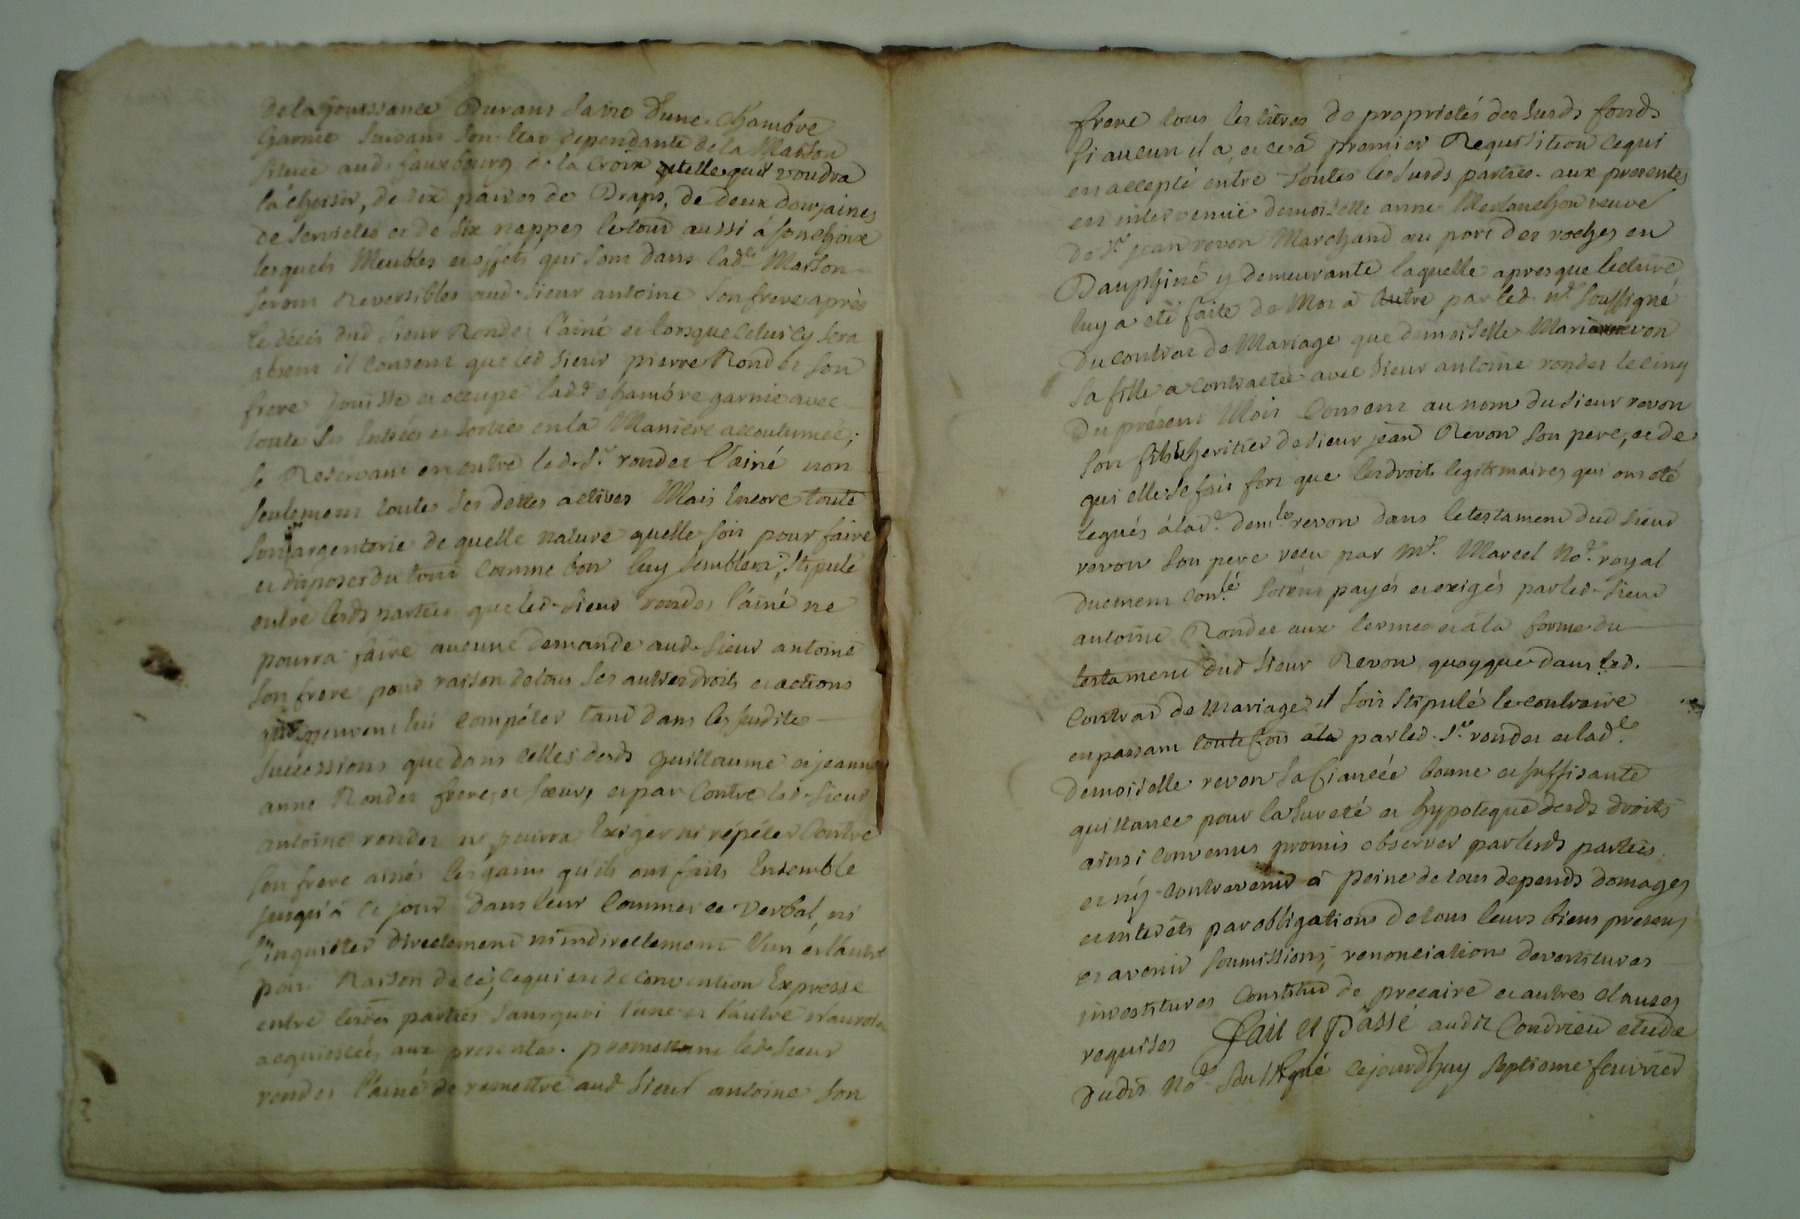 de la jouissance Durant sa vie d'une Chambre
Garnie suivant son état dependante de la Maison
située aud. fauxbourg de la Croix telle quil voudra
la choisir, de six paires de Draps, de deux douzaines
de serviettes et de six nappes le tout aussi à son choix
lesquels Meubles et effets qui sont dans lad.te Maison
seront Reversibles aud. sieur antoine son frere après
le décès dud sieur Rondet l'ainé et lorsque celui cy sera
absent il consent que led sieur pierre Rondet son
frere jouisse et occupe lad.e chambre garnie avec
toute ses entrées et sorties en la Maniere accoutumée;
se Reservant en outre led. S.r rondet l'ainé non
seulement toutes ses dettes actives Mais encore toute
son argenterie de quelle nature quelle soit pour faire
et disposer du tout comme bon luy semblera, stipulé
entre lesds parties que led. sieur rondet l'ainé ne
pourra faire aucune demande aud. sieur antoine
son frere pour raison de tous ses autres droits et actions
qui peuvent lui compéter tant dans les susdites
successions que dans celles desds guillaume et jeanne
anne Rondet frere et sœur, et par contre led. sieur
antoine rondet ne pourra exiger ni répéter contre
son frere ainé les gains qu'ils ont faits Ensemble
jusqu'à ce jour dans leur Commerce verbal, ni
s'inquieter directement ni indirectement l'un et l'autre
pour Raison de ce, ce qui est de convention Expresse
entre lesdes parties sans quoi l'une et l'autre n'auroient
acquiescées aux presentes. promettant led. sieur
rondet l'ainé de remettre aud sieur antoine son
frere tous les titres de proprietés des susds fonds
si aucun il a, et ce à premier Requisition ce qui
est accepté entre toutes les susds parties. aux presentes
est intervenüe demoiselle anne veuve
de S.r jean revon Marchand au port des roches en
Dauphiné y demeurante laquelle apres que lecture
luy a été faite de Mot à autre par led. n.re soussigné
du contrat de Mariage que demoiselle Marie revon
sa fille a contractée avec sieur antoine rondet le cinq
du présent Mois Consent au nom du sieur revon
son fils heritier de sieur jean Revon son pere, et de
qui elle se fait fort que les droits legitimaires qui ont été
legués à lad.e dem.le revon dans le testament dud sieur
revon son pere reçu par M.e Marcel No.re royal
duement con.lé soient payés et exigés par led. sieur
antoine Rondet aux termes et à la forme du
testament dud sieur Revon, quoyque dans led.
Contrat de Mariage il soit stipulé le contraire
en passant toute fois à la par led. S.r rondet et lad.e
demoiselle revon sa fiancée bonne et suffisante
quittance pour la sureté et hypoteque desds droits
ainsi convenus promis observer par lesds parties
et n'y contrevenir à peine de tous depends domages
et intérêts par obligations de tous leurs biens presens
et avenir soumissions, renonciation devestitures
investitures Constitut de precaire et autres clauses
requises Fait et Passé audit Condrieu etude
dudit No.re soussigné cejourdhuy septieme fevrier